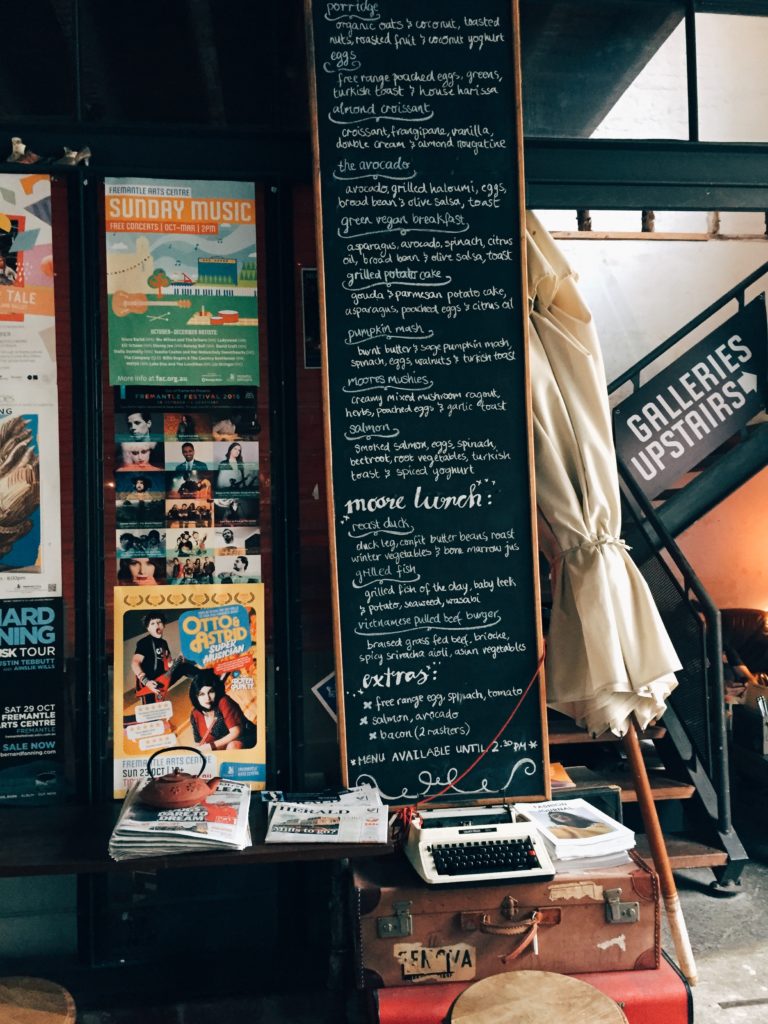 porridge
organic oats & coconut, toasted
nuts, roasted fruit & coconut yoghurt
eggs
free range poached eggs, greens,
turkish toast & house harissa
almond croissant
croissant, frangipane, vanilla,
double cream & almond nougatine
the avocado
avocado, grilled haloumi, eggs,
broad bean & olive salsa, toast
green vegan breakfast
asparagus, avocado, spinach, citrus
oil, broad bean & olive salsa, toast
grilled potato cake
gouda & parmesan potato cake,
asparagus, poached eggs & citrus oil
pumpkin mash
burnt butter & sage pumpkin mash,
spinach, eggs, walnuts & turkish toast
moore's mushies
creamy mixed mushroom ragout,
herbs, poached eggs & garlic toast
salmon
smoked salmon, eggs, spinach,
beetroot, root vegetables, turkish
toast & spiced yoghurt
moore lunch:
roast duck
duck leg, confit butter beans, roast
winter vegetables & bone marrow jus
grilled fish
grilled fish of the day, baby leek
& potato, seaweed, wasabi
vietnamese pulled beef burger
braised grass fed beef, brioche,
spicy sriracha aioli, asian vegetables
extras:
free range egg, spinach, tomato
salmon, avocado
bacon (2 rashers)
*MENU AVAILABLE UNTIL 2:30 PM*
FREMANTLE ARTS CENTRE
SUNDAY MUSIC
FREE CONCERTS | OCT-MAR | 2PM
OCTOBER-DECEMBER ARTISTS:
More info at fac.org.au
FREMANTLE FESTIVAL 2016
OTTO &
ASTRID
SUPER
MUSICIAN
DIE ROTEN
PUNKTE
SUN 23 OCT
TALE
NG
ARD
NING
SK TOUR
USTIN TEBBUTT
AINSLIE WILLS
SAT 29 OCT
FREMANTLE
ARTS CENTRE
SALE NOW
bernardfanning.com
GALLERIES
UPSTAIRS
DARE TO
DREAM
HERALD
Mills to go?
FASHION
JOURNAL
GENOVA